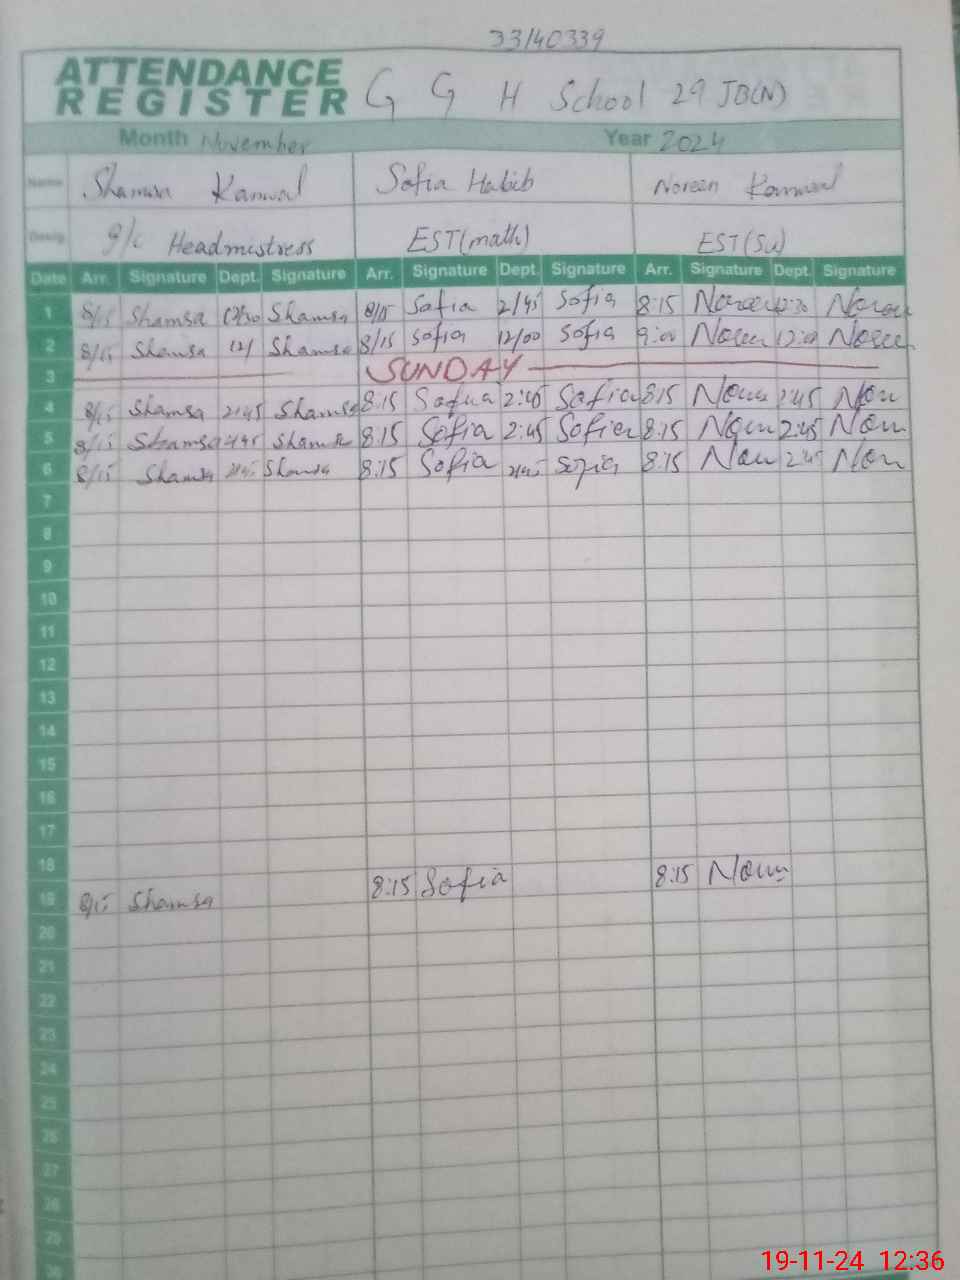 33140339
ATTENDANCE
REGISTER G G H School 29 JB(N)
Month November Year 2024
Name Shamsa Kanwal Sofia Habib Noreen Kanwal
Desig. I/C Headmistress EST(math) EST(SW)
Date Arr. Signature Dept. Signature Arr. Signature Dept. Signature Arr. Signature Dept. Signature
1 8/15 Shamsa 12/30 Shamsa 8/15 Sofia 2/45 Sofia 8:15 Noreen 12:30 Noreen
2 8/15 Shamsa 12/ Shamsa 8/15 Sofia 12/00 Sofia 9:00 Noreen 12:00 Noreen
3 SUNDAY
4 8/15 Shamsa 2:45 Shamsa 8:15 Sofia 2:45 Sofia 8:15 2:45
5 8/15 Shamsa 2:45 Shamsa 8:15 Sofia 2:45 Sofia 8:15 2:45
6 8/15 Shamsa 2:45 Shamsa 8:15 Sofia 2:45 Sofia 8:15 2:45
7
8
9
10
11
12
13
14
15
16
17
18
19 8/15 Shamsa 8:15 Sofia 8:15
20
21
22
23
24
25
26
27
28
29
30
19-11-24 12:36